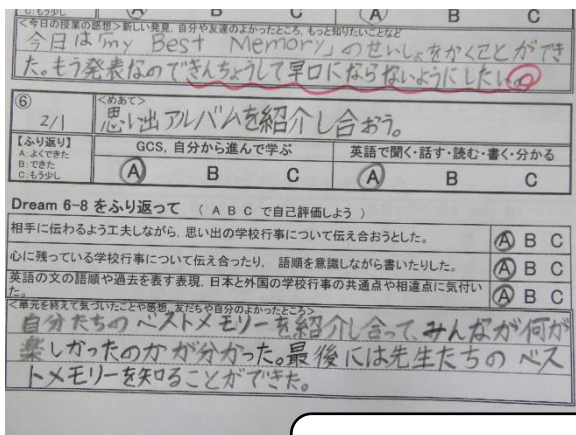 C:もう少し A B C A B C
<今日の授業の感想>新しい発見,自分や友達のよかったところ,もっと知りたいことなど
今日は「my Best Memory」のせいしょをかくことができ
た。もう発表なのできんちょうして早口にならないようにしたい。
⑥ <めあて>
2/1 思い出アルバムを紹介し合おう。
【ふり返り】 GCS,自分から進んで学ぶ 英語で聞く・話す・読む・書く・分かる
A:よくできた
B:できた A B C A B C
C:もう少し
Dream 6-8 をふり返って ( A B C で自己評価しよう )
相手に伝わるよう工夫しながら,思い出の学校行事について伝え合おうとした。 A B C
心に残っている学校行事について伝え合ったり,語順を意識しながら書いたりした。 A B C
英語の文の語順や過去を表す表現,日本と外国の学校行事の共通点や相違点に気付い A B C
た。
<単元を終えて気づいたことや感想,友だちや自分のよかったところ>
自分たちのベストメモリーを紹介し合って、みんなが何が
楽しかったのかが分かった。最後には先生たちのベス
トメモリーを知ることができた。